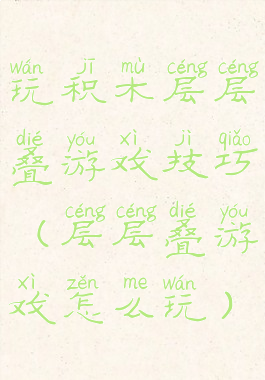 wán jī mù céng céng
玩积木层层
dié yóu xì jì qiǎo
叠游戏技巧
céng céng dié yóu
（层层叠游
xì zěn me wán
戏怎么玩）